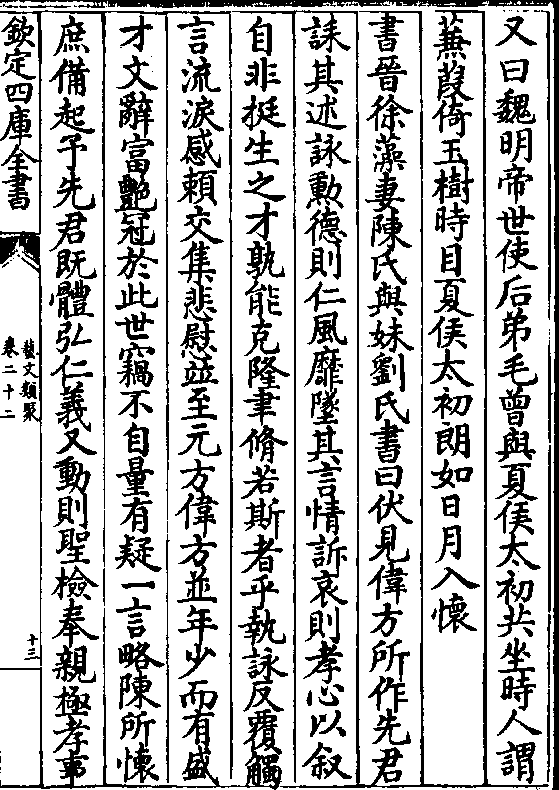 又曰魏明帝世使后弟毛曾與夏侯太初共坐時人謂
蕪葭倚玉樹時目夏侯太初朗如日月入懷
書晉徐藻妻陳氏與妹劉氏書曰伏見偉方所作先君
誄其述詠勳德則仁風靡墜其言情訴哀則孝心以叙
自非挺生之才孰能克隆聿脩若斯者乎執詠反覆觸
言流淚感賴交集悲慰並至元方偉方並年少而有盛
才文辭富艷冠於此世竊不自量有疑一言略陳所懷
庶備起予先君既體弘仁義又動則聖檢奉親極孝事
欽定四庫全書
藝文類聚
卷二十二
十三